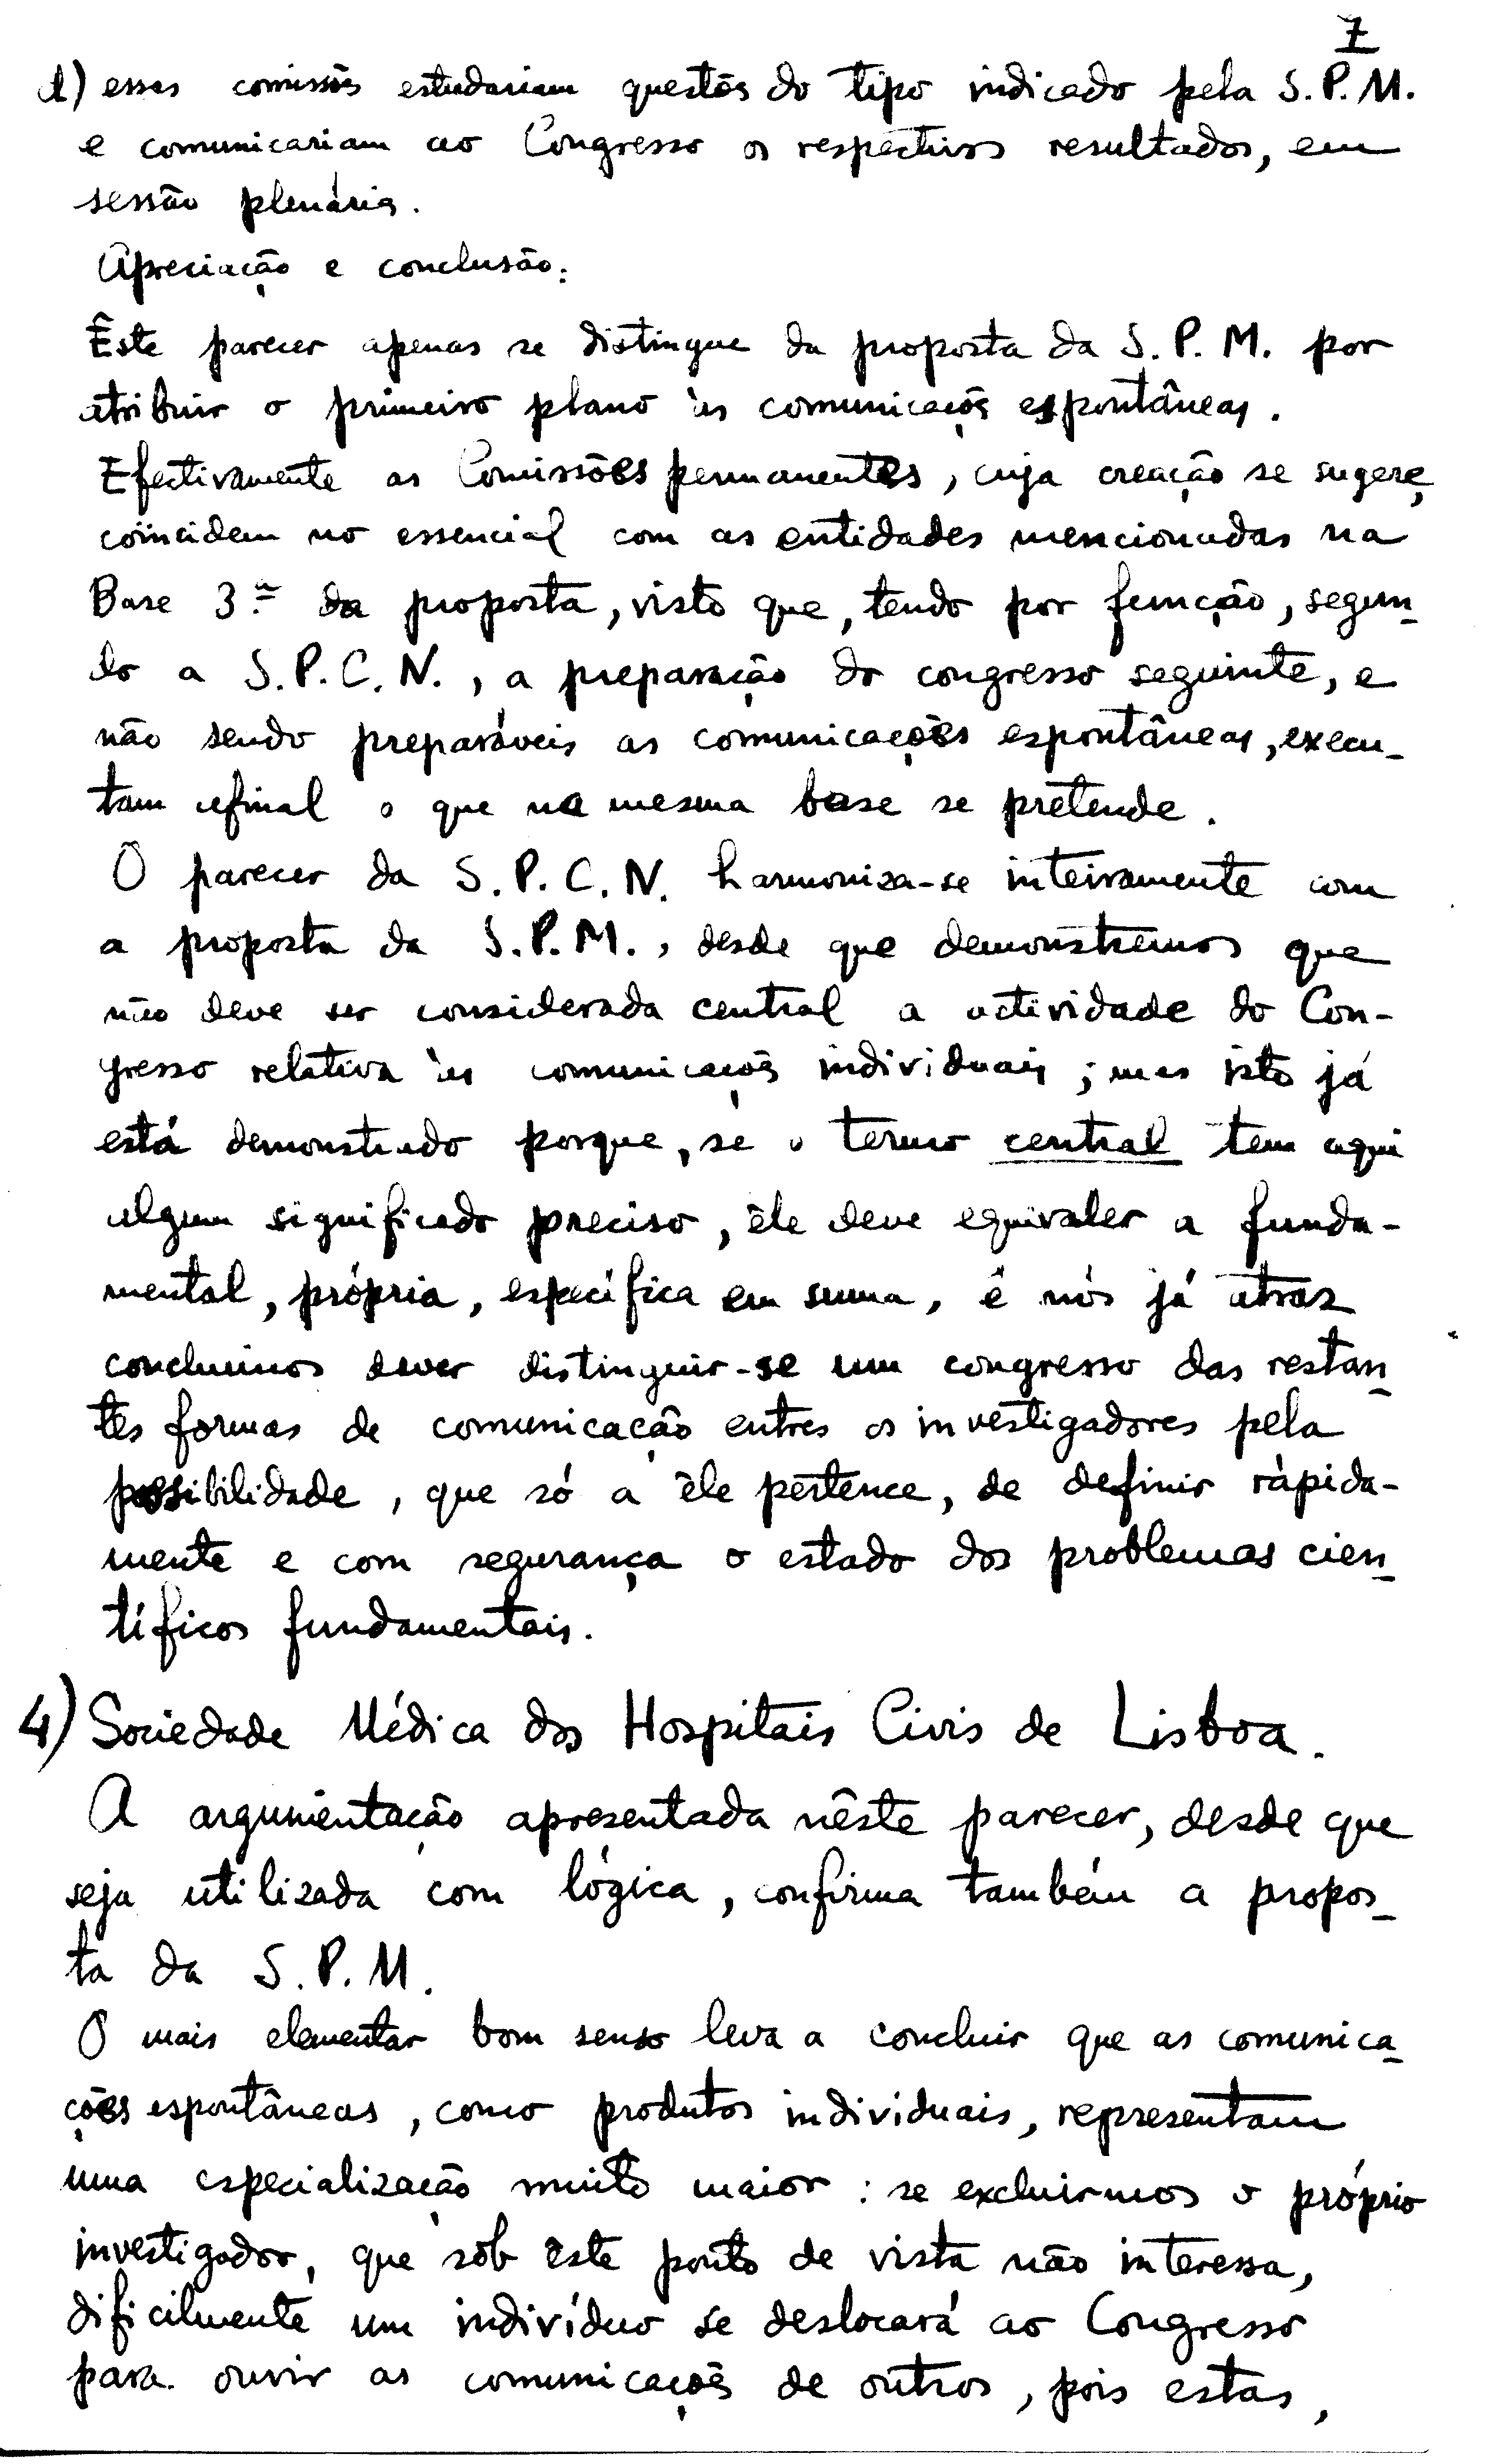 7
d) essas comissões estudariam questões do tipo indicado pela S.P.M.
e comunicariam ao Congresso os respectivos resultados, em
sessão plenária.
Apreciação e conclusão:
Êste parecer apenas se distingue da proposta da S. P. M. por
atribuir o primeiro plano às comunicações espontâneas.
Efectivamente as Comissões permanentes, cuja creação se sugere,
coincidem no essencial com as entidades mencionadas na
Base 3.ª da proposta, visto que, tendo por função, segun-
do a S.P.C.N., a preparação do congresso seguinte, e
não sendo preparáveis as comunicações espontâneas, execu-
tam afinal o que na mesma base se pretende.
O parecer da S.P.C.N. harmoniza-se inteiramente com
a proposta da S.P.M., desde que demonstremos que
não deve ser considerada central a actividade do Con-
gresso relativa às comunicações individuais; mas isto já
está demonstrado porque, se o termo central tem aqui
algum significado preciso, êle deve equivaler a funda-
mental, própria, específica em suma, e nós já atraz
concluimos dever distinguir-se um congresso das restan-
tes formas de comunicação entres os investigadores pela
possibilidade, que só a êle pertence, de definir ràpida-
mente e com segurança o estado dos problemas cien-
tíficos fundamentais.
4) Sociedade Médica dos Hospitais Civis de Lisboa.
A argumentação apresentada nêste parecer, desde que
seja utilizada com lógica, confirma também a propos-
ta da S.P.M.
O mais elementar bom senso leva a concluir que as comunica-
ções espontâneas, como produtos individuais, representam
uma especialização muito maior: se excluirmos o próprio
investigador, que sôb êste ponto de vista não interessa,
dificilmente um indivíduo se deslocará ao Congresso
para ouvir as comunicações de outros, pois estas,